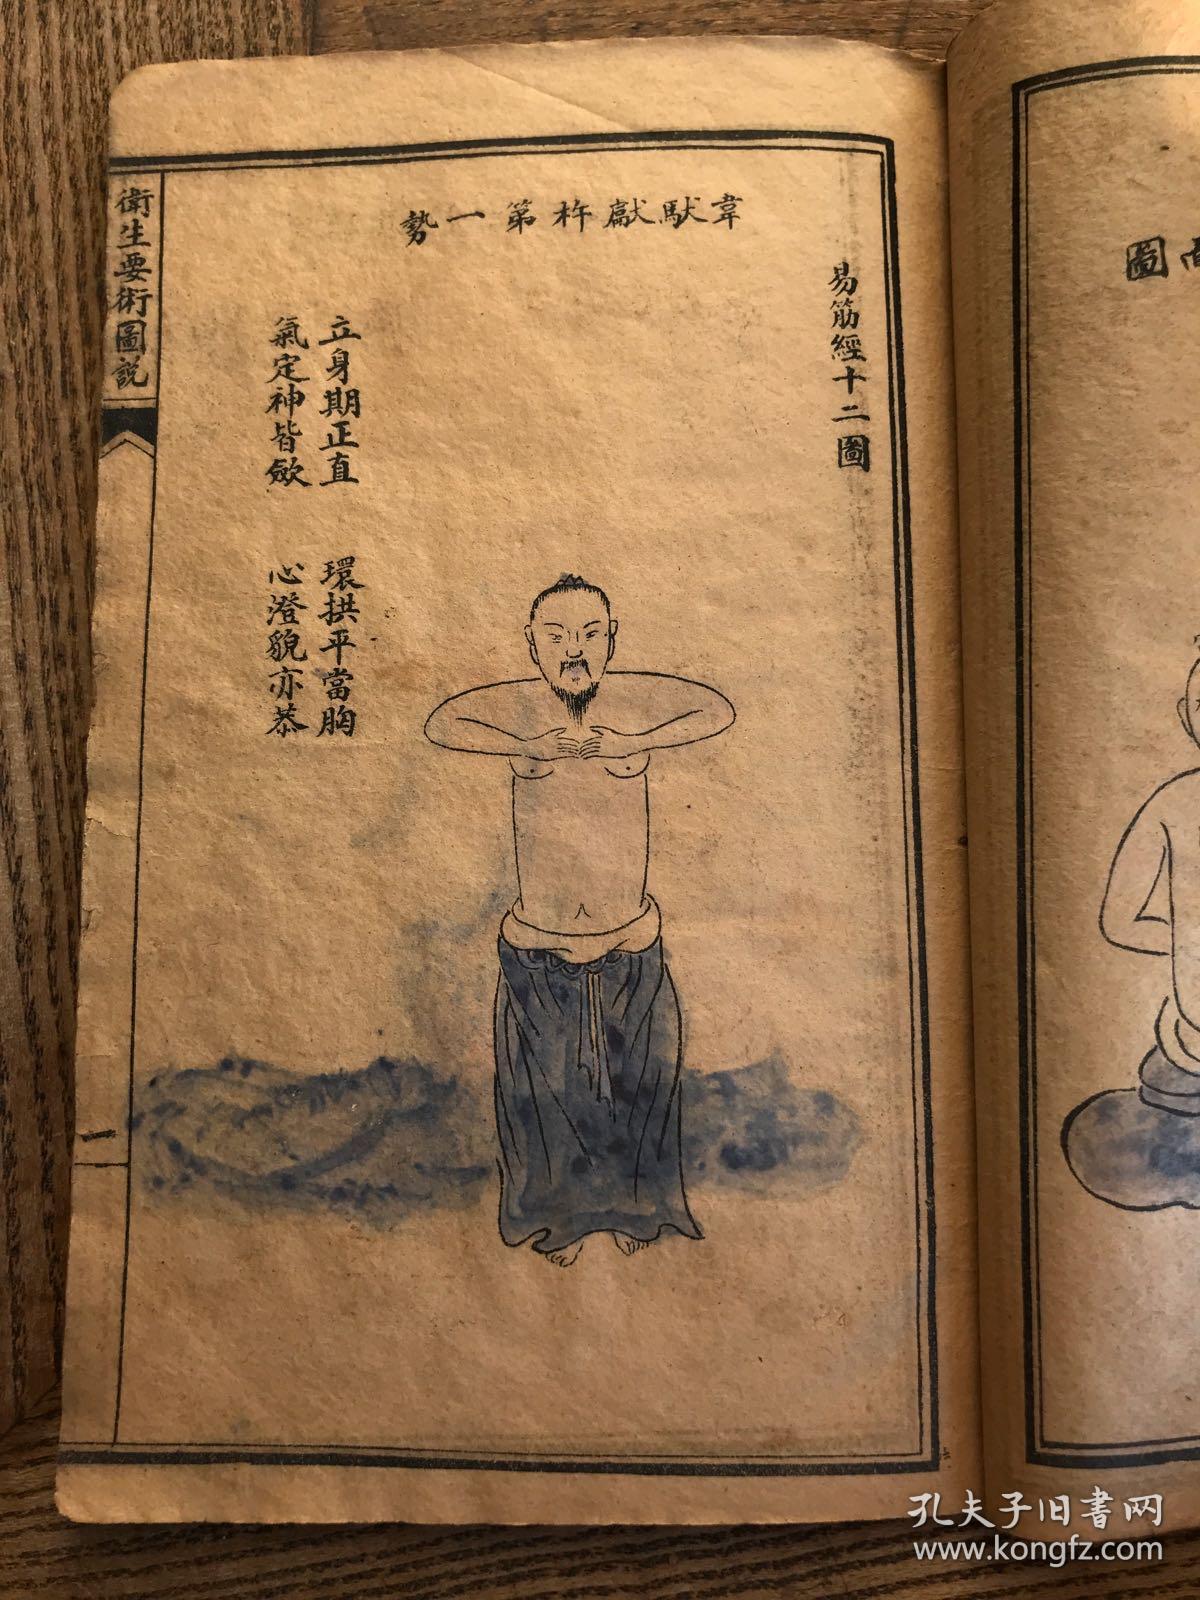 易筋經十二圖
韋馱獻杵第一勢
立身期正直
環拱平當胸
氣定神皆斂
心澄貌亦恭
衛生要術圖說
一
圖
孔夫子旧书网
www.kongfz.com